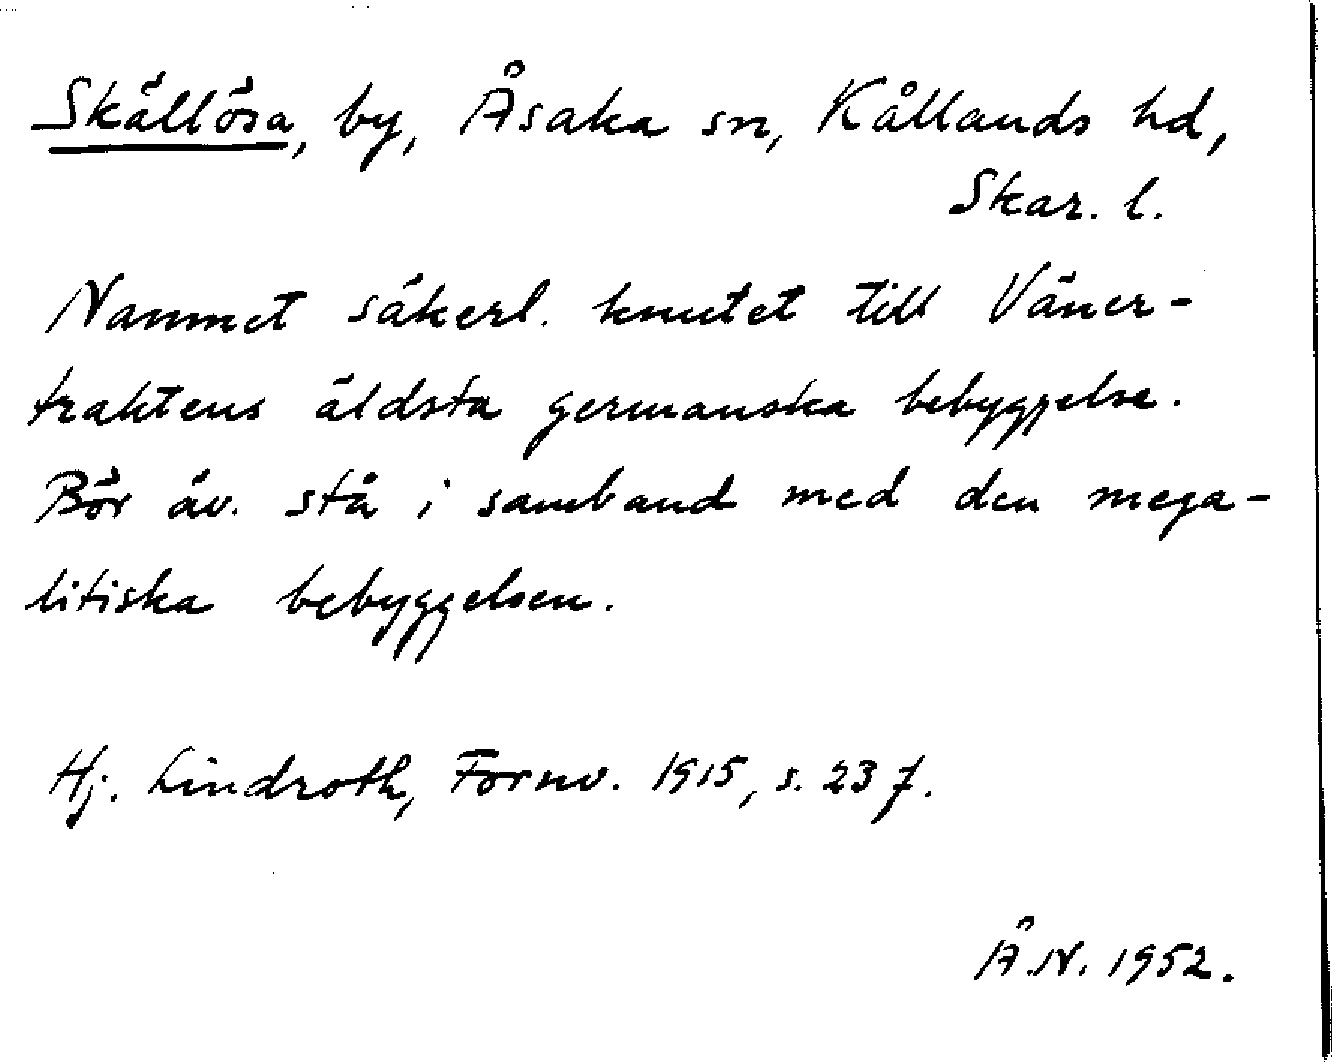 Skällösa, by, Åsaka sn, Kållands hd,
Skar. l.
Namnet säkerl. knutet till Väner-
traktens äldsta germanska bebyggelse.
Bör äv. stå i samband med den mega-
litiska bebyggelsen.
Hj. Lindroth, Fornv. 1915, s. 23 f.
Å.N. 1952.